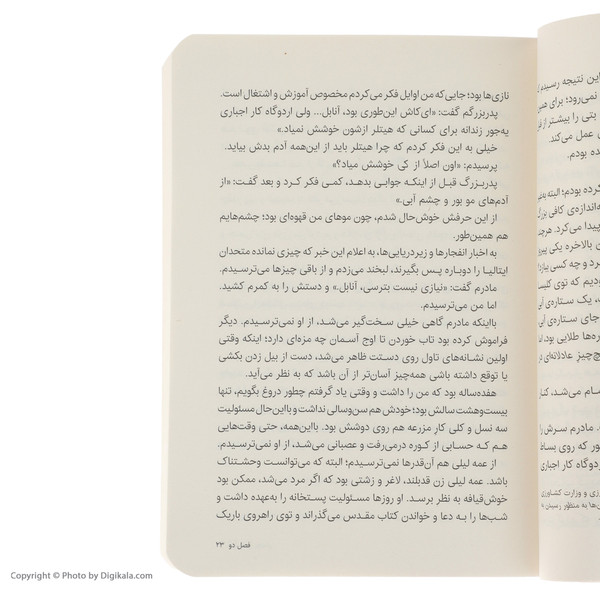 نازی‌ها بود؛ جایی‌که من اوایل فکر می‌کردم مخصوص آموزش و اشتغال است.
پدربزرگم گفت: «ای‌کاش این‌طوری بود، آنابل... ولی اردوگاه کار اجباری
یه‌جور زندانه برای کسانی که هیتلر ازشون خوشش نمیاد.»
خیلی به این فکر کردم که چرا هیتلر باید از این‌همه آدم بدش بیاید.
پرسیدم: «اون اصلاً از کی خوشش میاد؟»
پدربزرگ قبل از اینکه جوابی بدهد، کمی فکر کرد و بعد گفت: «از
آدم‌های مو بور و چشم آبی.»
از این حرفش خوش‌حال شدم، چون موهای من قهوه‌ای بود؛ چشم‌هایم
هم همین‌طور.
به اخبار انفجارها و زیردریایی‌ها، به اعلام این خبر که چیزی نمانده متحدان
ایتالیا را دوباره پس بگیرند، لبخند می‌زدم و از باقی چیزها می‌ترسیدم.
مادرم گفت: «نیازی نیست بترسی، آنابل.» و دستش را به کمرم کشید.
اما من می‌ترسیدم.
بااینکه مادرم گاهی خیلی سخت‌گیر می‌شد، از او نمی‌ترسیدم. دیگر
فراموش کرده بود تاب خوردن تا اوج آسمان چه مزه‌ای دارد؛ اینکه وقتی
اولین نشانه‌های تاول روی دستت ظاهر می‌شد، دست از بیل زدن بکشی
یا توقع داشته باشی همه‌چیز آسان‌تر از آن باشد که به نظر می‌آید.
هفده‌ساله بود که من را داشت و وقتی یاد گرفتم چطور دروغ بگویم، تنها
بیست‌وهشت سالش بود؛ خودش هم سن‌وسالی نداشت و بااین‌حال مسئولیت
سه نسل و کلی کارِ مزرعه هم روی دوشش بود. بااین‌همه، حتی وقت‌هایی
هم که حسابی از کوره درمی‌رفت و عصبانی می‌شد، از او نمی‌ترسیدم.
از عمه لیلی هم آن‌قدرها نمی‌ترسیدم؛ البته که می‌توانست وحشتناک
باشد. عمه لیلی زن قدبلند، لاغر و زشتی بود که اگر مرد می‌شد، ممکن بود
خوش‌قیافه به نظر برسد. او روزها مسئولیت پستخانه را به‌عهده داشت و
شب‌ها را به دعا و خواندن کتاب مقدس می‌گذراند و توی راهروی باریک
فصل دو ۲۳
این نتیجه رسیدم
نمی‌رود؛ برای
بتی را بیشتر از
عمل می‌کند.
ده بودم.
کرده بودم؛ البته
به‌اندازه‌ی کافی بزرگ
پیدا می‌کرد. هرچند
بالاخره یکی پیروز
رد و چه کسی
ودیم که توی
ت، یک ستاره‌ی
جای ستاره‌ی
ره‌ها طلایی بود.
چ‌چیز عادلانه‌ای در
می‌شد، کنار
مادرم سرش را
ور که روی بساط
ردوگاه کار اجباری
وزارت کشاورزی
به منظور رسیدن به
Copyright © Photo by Digikala.com